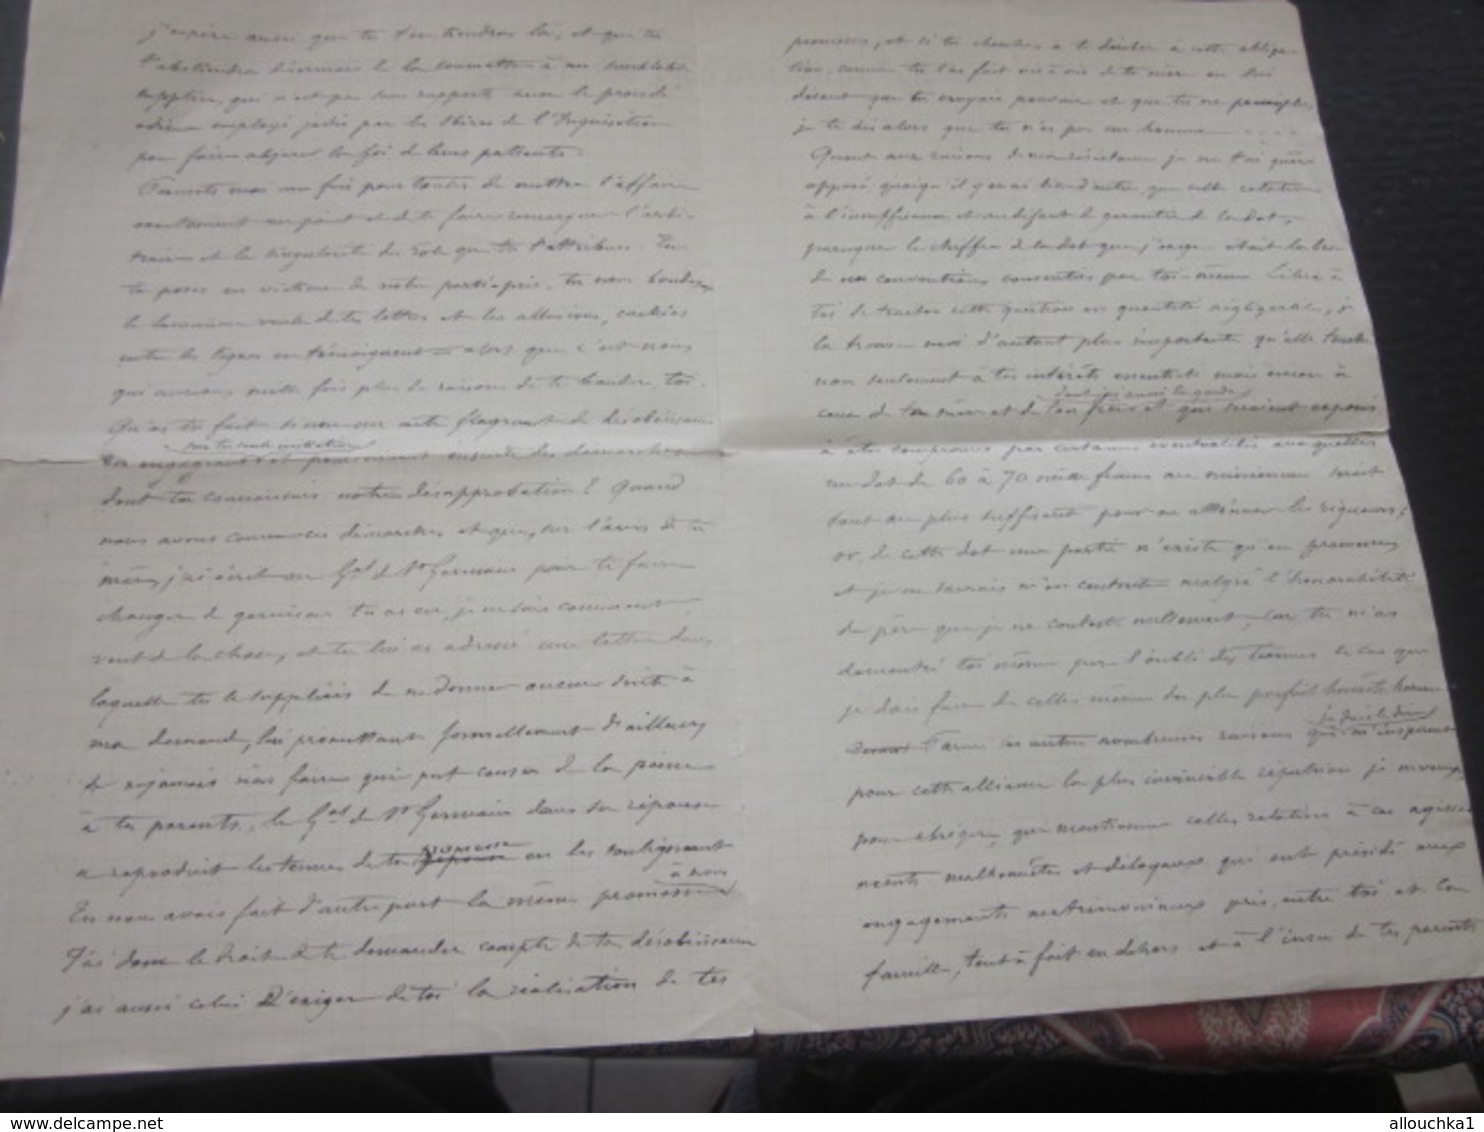 j'espère aussi que tu t'en tiendras là, et que tu
t'abstiendras désormais de la soumettre à un
supplice, qui n'est pas sans rapports avec le procédé
odieux employé jadis par les sbires de l'Inquisition
pour faire abjurer la foi de leurs patients.
Permets moi une fois pour toutes de mettre l'affaire
au point et de te faire remarquer l'arbi-
traire et la singularité du rôle que tu t'attribues. Tu
te poses en victime de notre parti-pris, tu nous boudes,
le laconisme de tes lettres et les allusions, cachées
entre les lignes en témoignent alors que c'est nous
qui aurions mille fois plus de raisons de te bouder, toi.
Qu'as tu fait sinon un acte flagrant de désobéissance
en engageant et poursuivant ensuite des démarches
dont tu connaissais notre désapprobation? Quand
nous avons connu ces démarches et que, sur l'avis de ta
mère, j'ai écrit au Gal de St Germain pour te faire
changer de garnison tu as eu, je ne sais comment,
vent de la chose, et tu lui as adressé une lettre dans
laquelle tu le suppliais de ne donner aucune suite à
ma demande, lui promettant formellement d'ailleurs
de ne jamais rien faire qui put causer de la peine
à tes parents, le Gal de St Germain dans sa réponse
a reproduit les termes de ta promesse en les soulignant
Tu nous avais fait d'autre part la même promesse à nous
J'ai donc le droit de te demander compte de ta désobéissance
j'ai aussi celui d'exiger de toi la réalisation de tes
promesses, et si tu cherches à te dérober à cette obliga-
tion, comme tu l'as fait vis à vis de ta mère en lui
disant que tu croyais pouvoir et que tu ne
je te dis alors que tu n'es pas un homme ....
Quant aux raisons de ma résistance je ne t'ai guère
opposé, quoiqu'il y en ai bien d'autres, que celle relative
à l'insuffisance et au défaut de garantie de la dot,
puisque le chiffre de la dot que j'exige était la base
de nos conventions consenties par toi-même. Libre à
toi de traiter cette question en quantité négligeable, je
la trouve moi d'autant plus importante qu'elle touche
non seulement à tes intérêts essentiels mais encore à
ceux de ton mère et de ton frère dont j'ai aussi la garde et qui seraient exposés
à être compromis par certaines éventualités auxquelles
une dot de 60 à 70 mille francs au minimum serait
tout au plus suffisante pour en atténuer les rigueurs;
or, de cette dot une partie n'existe qu'en promesses
et je ne saurais m'en contenter malgré l'honorabilité
du père que je ne conteste nullement, car tu m'as
démontré toi même par l'oubli des tiennes le cas que
je dois faire de celles même du plus parfait honnête homme
autres nombreuses raisons qui m'inspirent je dois le dire
pour cette alliance la plus invincible répulsion je ne veux,
pour abréger, que mentionner celles relatives à ces agisse-
ments malhonnêtes et déloyaux qui ont présidé aux
engagements matrimoniaux pris, entre toi et la
famille, tout à fait en dehors et à l'insu de tes parents
www.delcampe.net
allouchka1